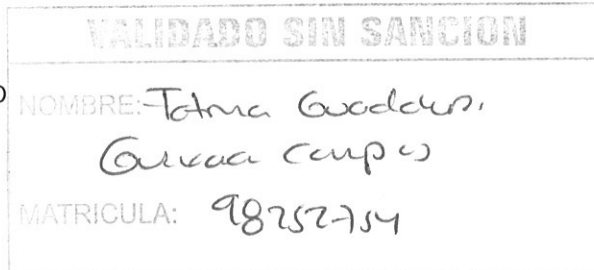 VALIDADO SIN SANCION
NOMBRE: Fatma Guadalup.
Campos
MATRICULA: 98252754